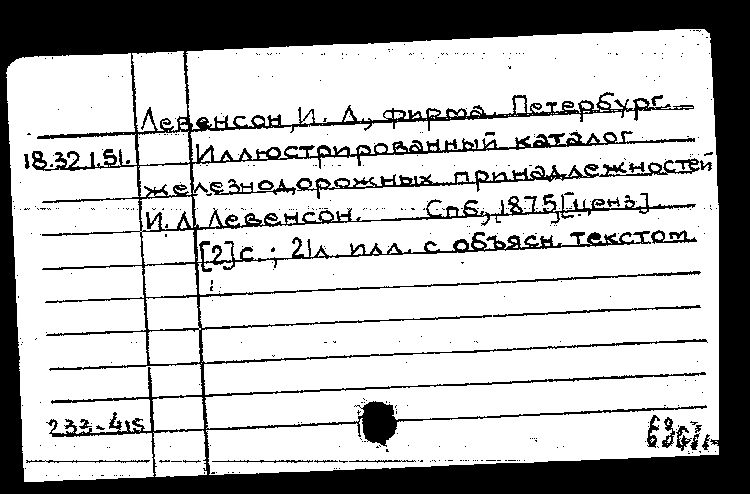 Левенсон, И. Л., фирма. Петербург.
18.32.1.51. Иллюстрированный каталог
железнодорожных принадлежностей
И. Л. Левенсон. Спб., 1875 [ценз].
[2] с.; 21 л. илл. с объясн. текстом.
233-415